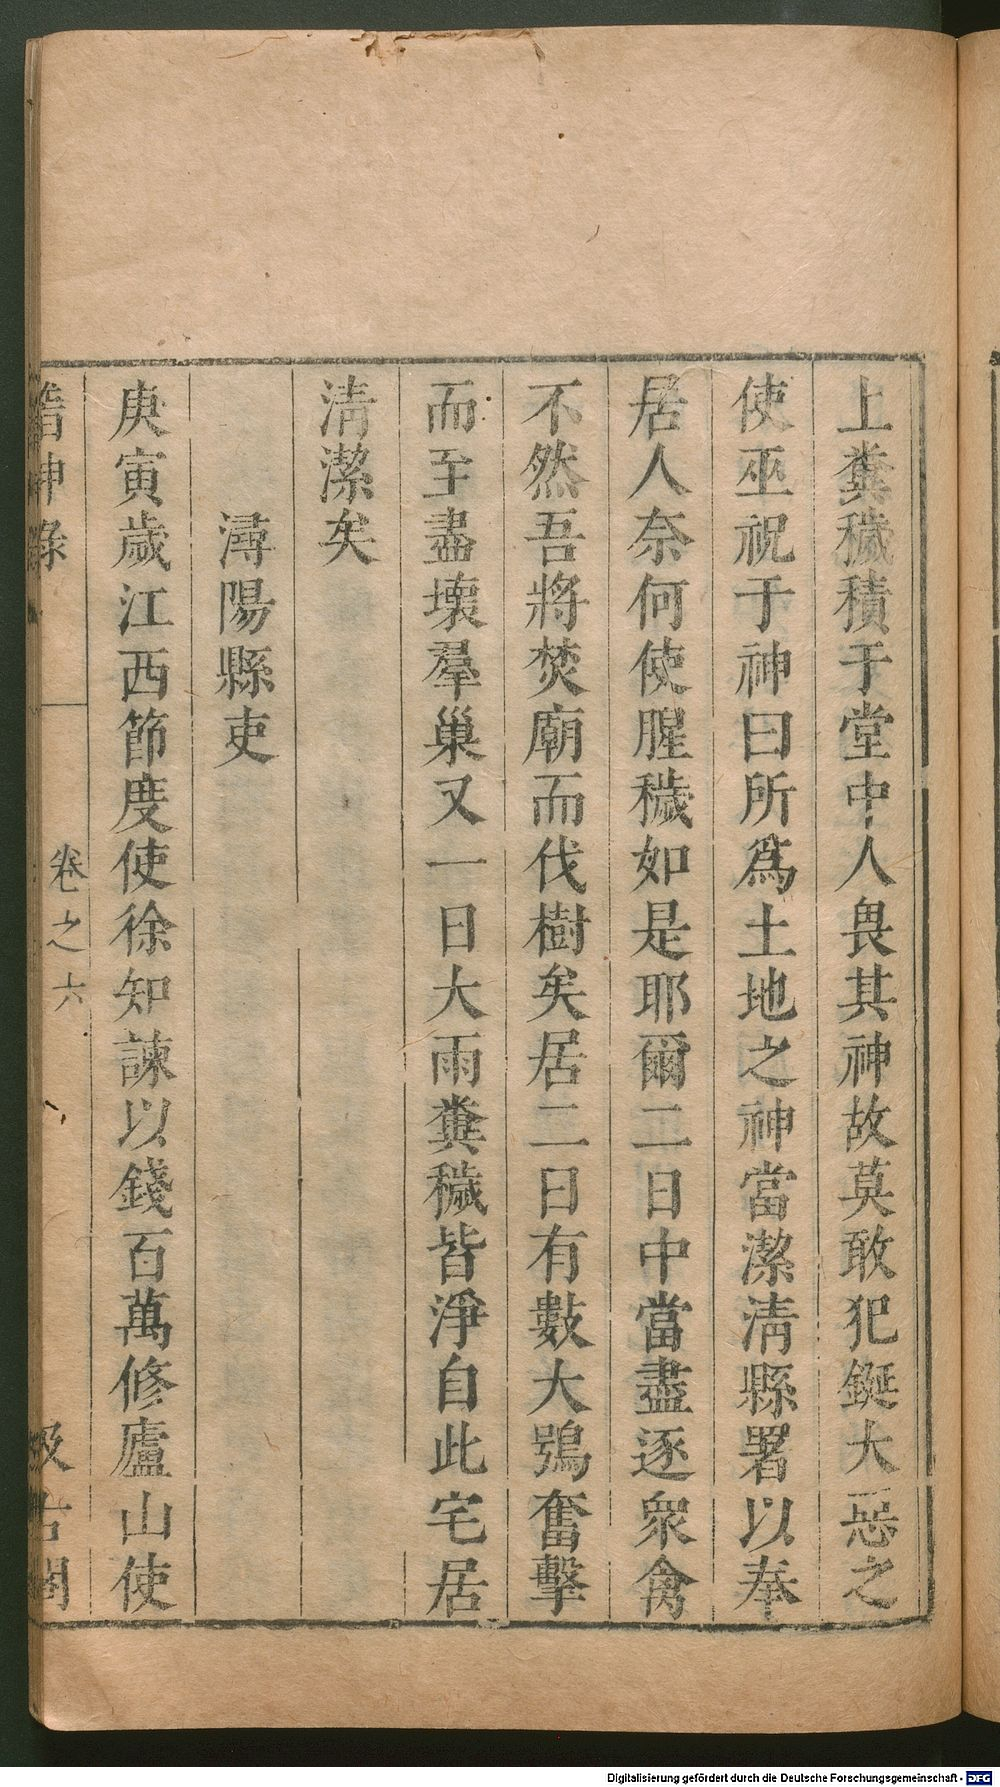 上糞穢積于堂中人畏其神故莫敢犯鋋大惡之
使巫祝于神曰所爲土地之神當潔清縣署以奉
居人奈何使腥穢如是耶爾二日中當盡逐衆禽
不然吾將焚廟而伐樹矣居二日有數大鶚奮擊
而至盡壞羣巢又一日大雨糞穢皆淨自此宅居
清潔矣
潯陽縣吏
庚寅歲江西節度使徐知諫以錢百萬修廬山使
稽神錄
卷之六
汲古閣
Digitalisierung gefördert durch die Deutsche Forschungsgemeinschaft - DFG